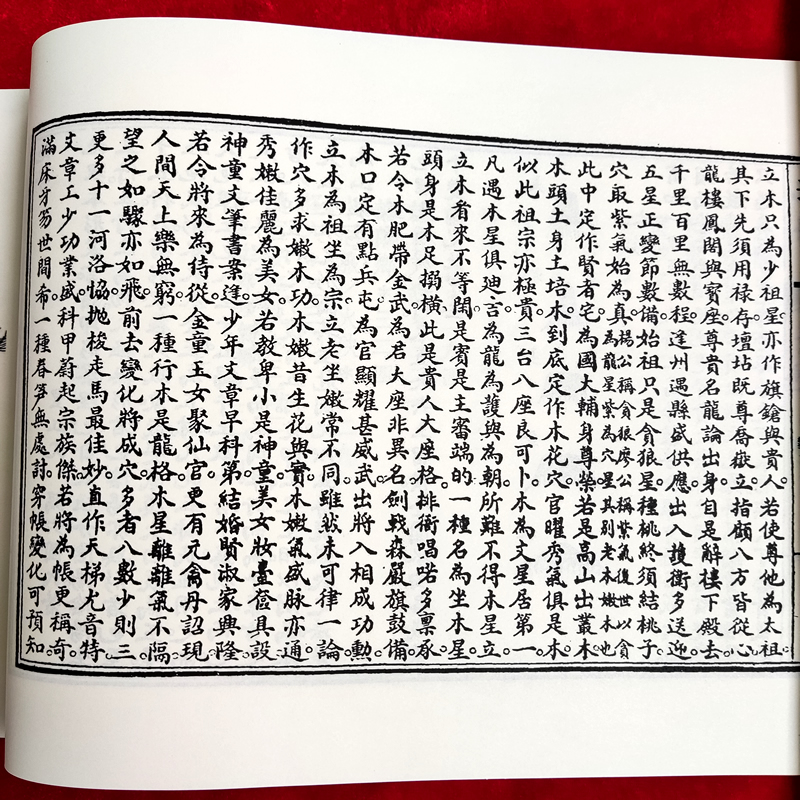 立木只為少祖星亦作旗鎗與貴人若使尊他為太祖
其下先須用祿存壇坫既尊喬嶽立指顧八方皆從心
龍樓鳳閣與寶座尊貴名龍論出身自是解樓下殿去
千里百里無數程逢州遇縣盛供應出入護衛多送迎
五星正變節數備始祖只是貪狼星種桃終須結桃子
穴取紫氣始為真楊公稱貪狼廖公稱紫氣後世以貪
為龍星紫為穴星其別老木嫩木也
此中定作賢者宅為國大輔身尊榮若是高山出叢木
木頭土身土培木到底定作木花穴官曜秀氣俱是木
似此祖宗亦極貴三台八座良可卜木為文星居第一
凡遇木星俱迪吉為龍為護與為朝所難不得木星立
立木看來不等閒是賓是主審端的一種名為坐木星
頭身是木足搊橫此是貴人大座格排衙唱喏多稟承
若令木肥帶金武為君大座非異名劍戟森嚴旗鼓備
木口定有點兵屯為官顯耀甚威武出將入相成功勳
立木為祖坐為宗立老坐嫩常不同雖然未可律一論
作穴多求嫩木功木嫩昔生花與實木嫩氣盛脉亦通
秀嫩佳麗為美女若教卑小是神童美女妝臺奩具設
神童文筆書案逢少年文章早科第結婚賢淑家興隆
若令將來為侍從金童玉女聚仙官更有元禽丹詔現
人間天上樂無窮一種行木是龍格木星離離氣不隔
望之如驟亦如飛前去變化將成穴多者八數少則三
更多十一河洛恊拋梭走馬最佳妙直作天梯尤音特
文章工少功業盛科甲蔚起宗族傑若將為帳更稱奇
滿床牙笏世間希一種春笋無處討穿帳變化可預知